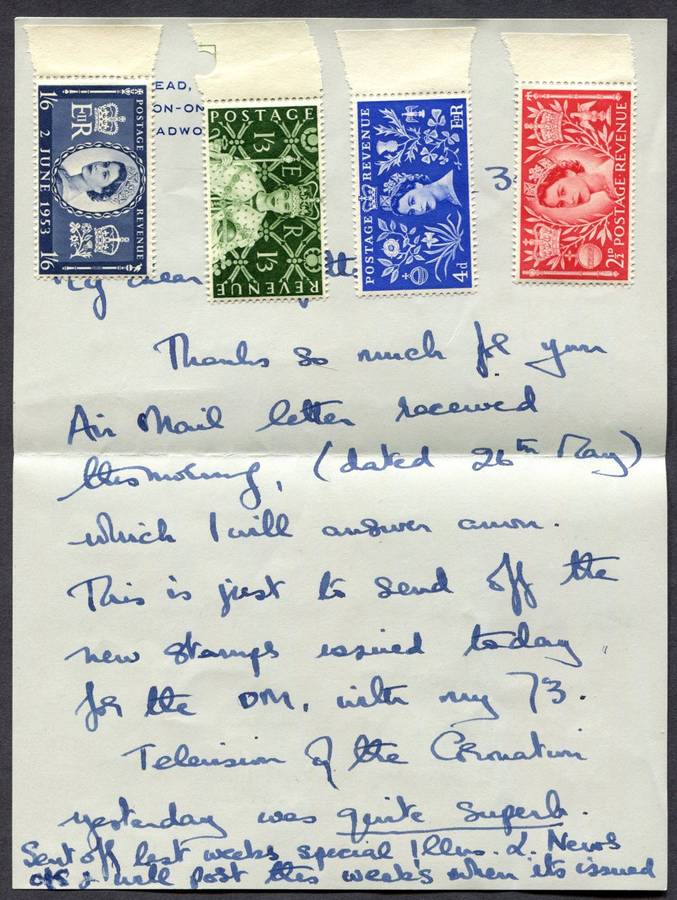 EAD,
ON-ON
ADWO
3
1/6 2 JUNE 1953 1/6
POSTAGE REVENUE
E II R
POSTAGE
1/3
E R
1/3
REVENUE
POSTAGE REVENUE
E II R
4d
2½D POSTAGE·REVENUE
My dear
Thanks so much for your
Air Mail letter received
this morning, (dated 26th May)
which I will answer anon.
This is just to send off the
new stamps issued today
for the OM, with my 73.
Television of the Coronation
yesterday was quite superb.
Sent off last weeks special Illus. L. News
& will post this week's when its issued